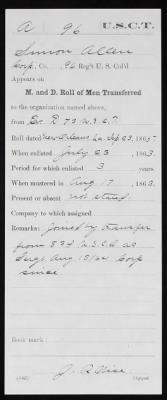 A 96 U.S.C.T.
Simon Allen
Corp., Co. , 96 Reg't U. S. Col'd
Appears on
M. and D. Roll of Men Transferred
to the organization named above,
from Co. 73 U.S.C.T.
Roll dated New Orleans La Sep 23, 1865.
When enlisted July 23, 1863.
Period for which enlisted 3 years.
When mustered in Aug 17, 1863.
Present or absent not stated
Company to which assigned
Remarks: Joined by transfer
from 83d U.S.C.I. as
Sergt Aug 15/64 Corp
since
Book mark: